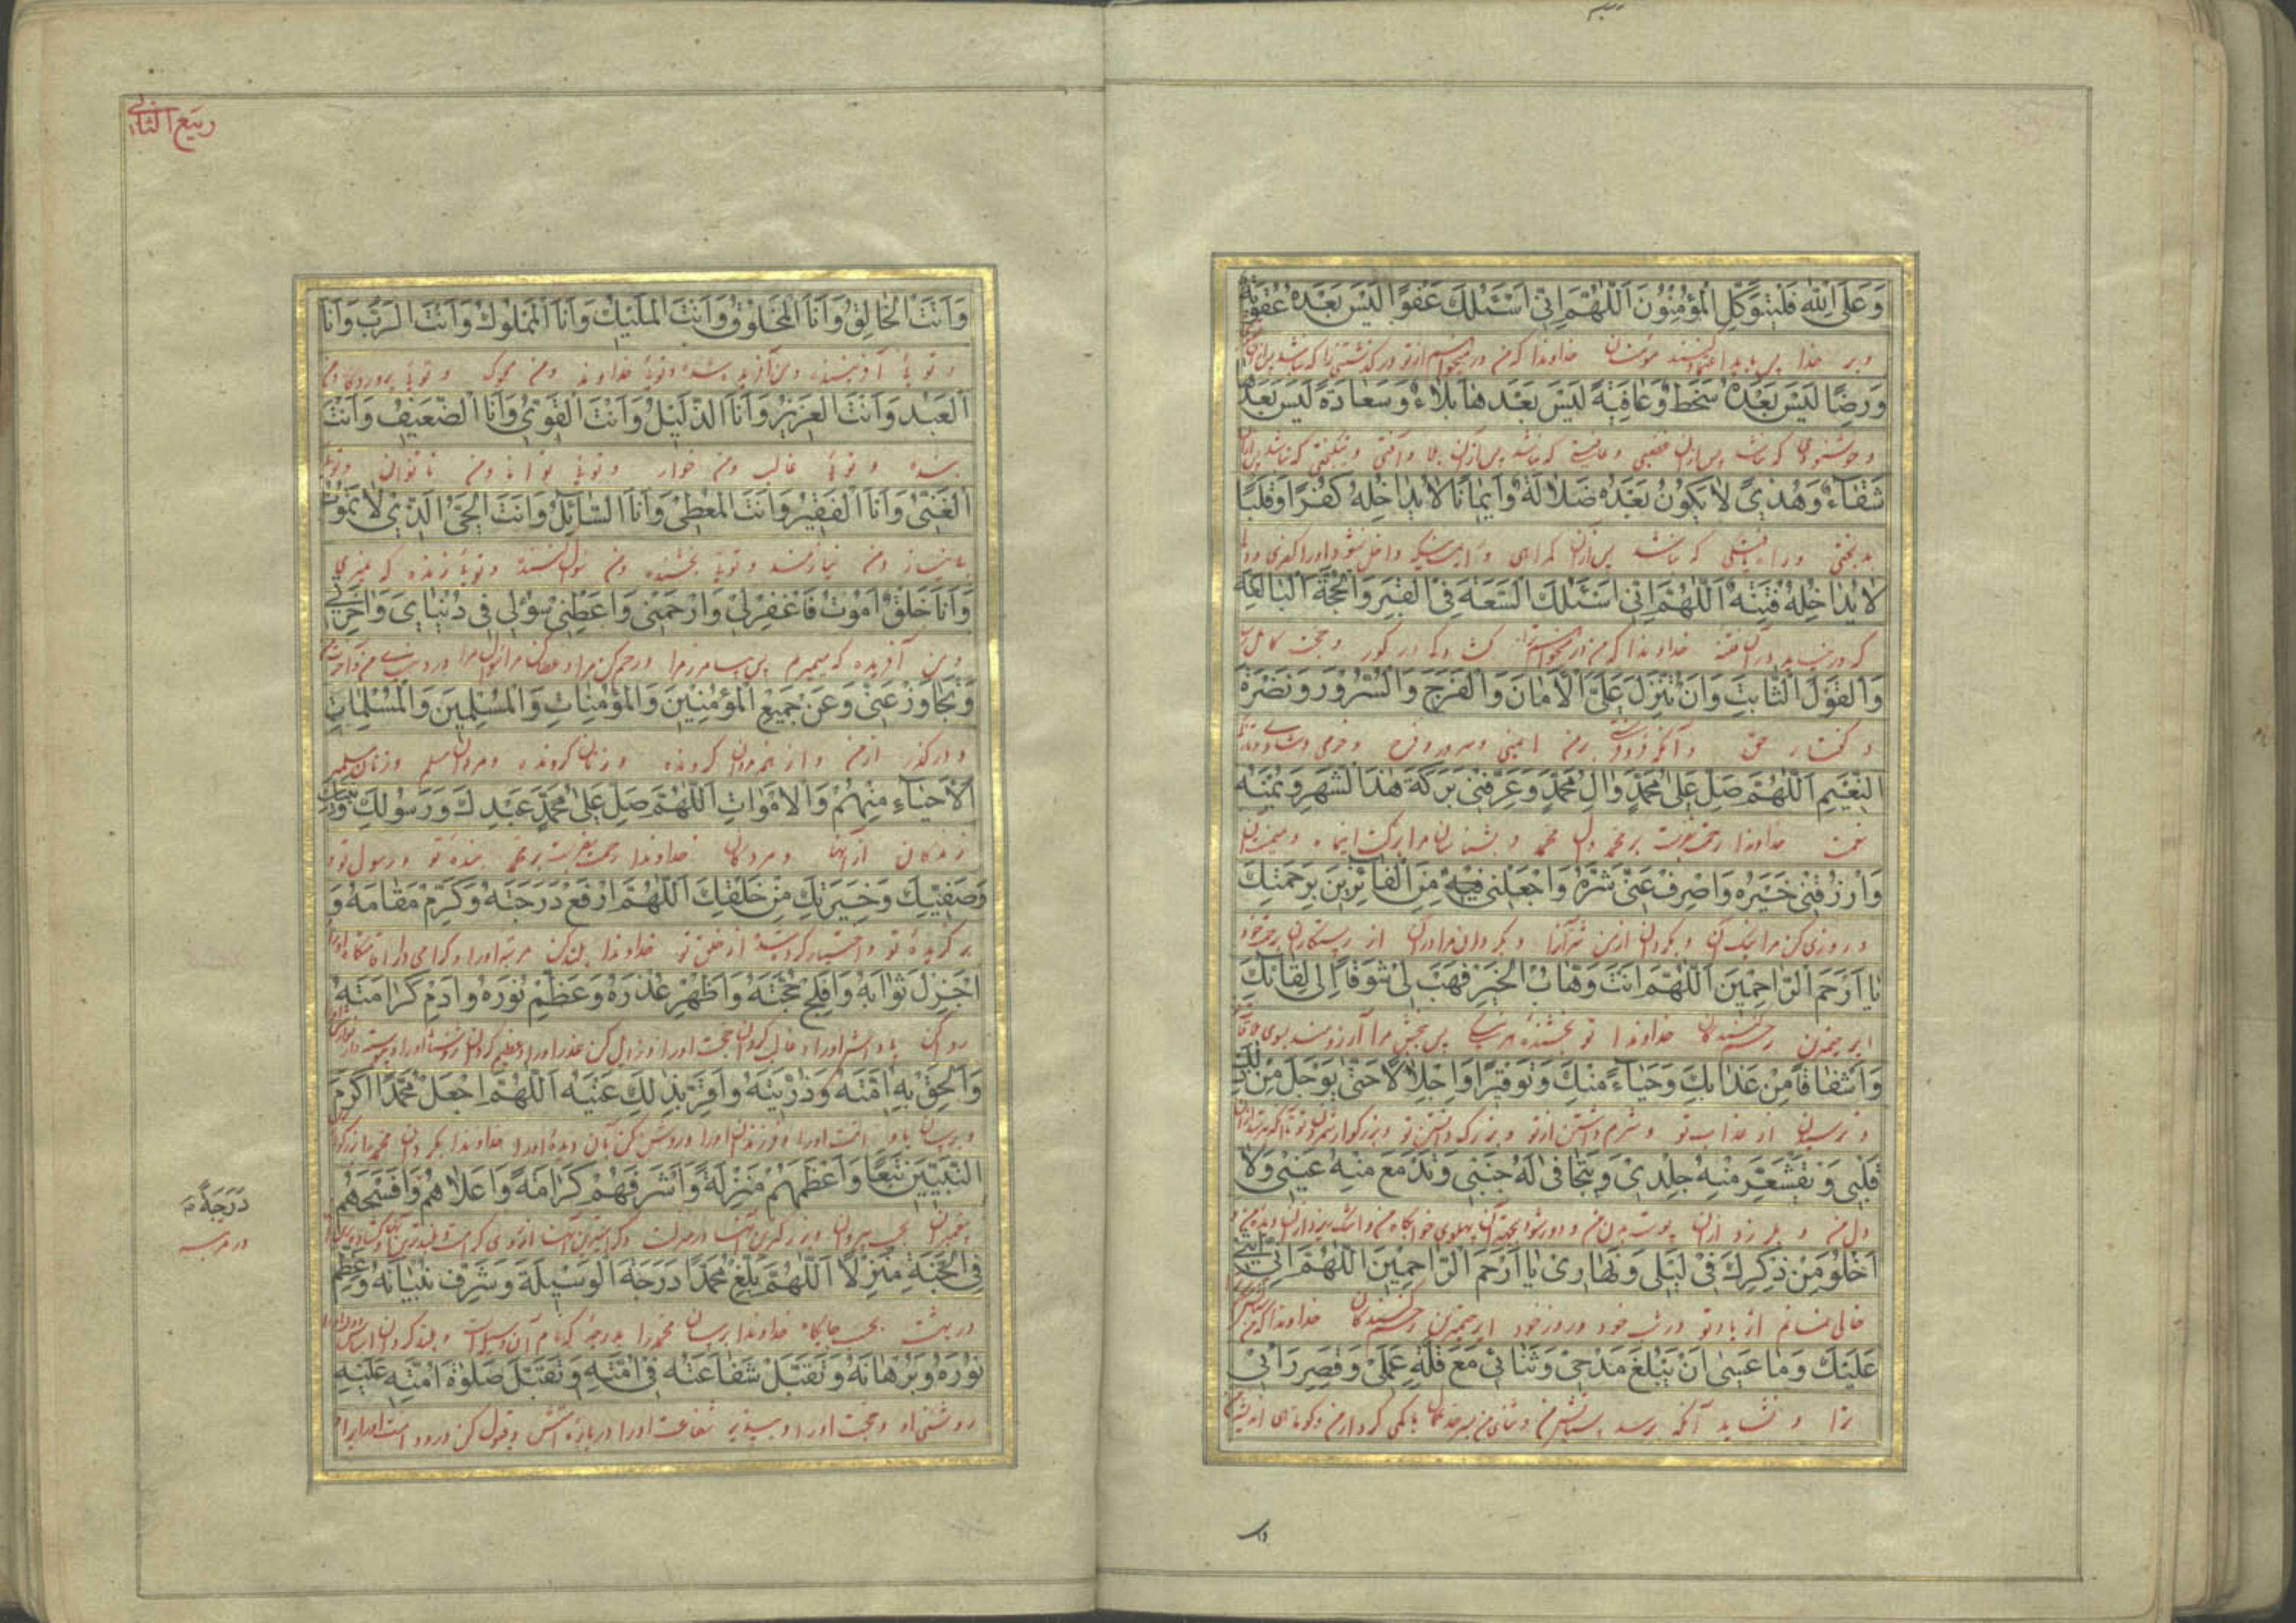 وَعَلَى اللّٰهِ فَلْيَتَوَكَّلِ الْمُؤْمِنُونَ اَللّٰهُمَّ اِنّى اَسْئَلُكَ عَفْوًا لَيْسَ بَعْدَهُ عُقُوبَةٌ
وبر خدا پس باید اعتماد کنند مؤمنان خداوندا که من از تو
وَرِضًا لَيْسَ بَعْدَهُ سَخَطٌ وَعَافِيَةً لَيْسَ بَعْدَهَا بَلَاءٌ وَسَعَادَةً لَيْسَ بَعْدَهَا
و خوشنودی که نباشد پس ازان غضبی و عافیتی که نباشد پس ازان بلا و آفتی و نیکبختی که نباشد پس ازان
شَقَاءٌ وَهُدًى لَا يَكُونُ بَعْدَهُ ضَلَالَةٌ وَاِيمَانًا لَا يُدَاخِلُهُ كُفْرٌ وَقَلْبًا
بدبختی که نباشد پس ازان گمراهی و داخل نشود اورا کفری
لَا يُدَاخِلُهُ فِتْنَةٌ اَللّٰهُمَّ اِنّى اَسْئَلُكَ السَّعَةَ فِى الْقَبْرِ وَالْحُجَّةَ الْبَالِغَةَ
که در نیاید دران فتنه خداوندا که من در گور و حجت کامل
وَالْقَوْلَ الثَّابِتَ وَاَنْ تُنْزِلَ عَلَىَّ الْاَمَانَ وَالْفَرَجَ وَالسُّرُورَ وَنَضْرَةَ
و گفتار حق و آنکه بر من ایمنی و سرور و فرح و خرمی
النَّعِيمِ اَللّٰهُمَّ صَلِّ عَلَى مُحَمَّدٍ وَآلِ مُحَمَّدٍ وَعَرِّفْنِى بَرَكَةَ هَذَا الشَّهْرِ وَيُمْنَهُ
نعمت خداوندا رحمت بفرست بر محمد و آل محمد و بشناسان مرا برکت این ماه
وَارْزُقْنِى خَيْرَهُ وَاصْرِفْ عَنِّى شَرَّهُ وَاجْعَلْنِى فِيهِ مِنَ الْفَائِزِينَ بِرَحْمَتِكَ
و روزی کن مرا و بگردان از من شر آنرا و بگردان مرا دران از رستگاران برحمت خود
يَا اَرْحَمَ الرَّاحِمِينَ اَللّٰهُمَّ اَنْتَ وَهَّابُ الْخَيْرِ فَهَبْ لِى شَوْقًا اِلَى لِقَائِكَ
ای رحیمترین رحم کنندگان خداوندا تو بخشنده پس ببخش مرا آرزومند بسوی
وَاِشْفَاقًا مِنْ عَذَابِكَ وَحَيَاءً مِنْكَ وَتَوْقِيرًا وَاِجْلَالًا حَتَّى يَوْجَلَ مِنْ ذَلِكَ
و ترسیدن از عذاب تو و شرم داشتن از تو و بزرگ داشتن تو
قَلْبِى وَيَقْشَعِرَّ مِنْهُ جِلْدِى وَيَتَجَافَى لَهُ جَنْبِى وَتَدْمَعَ مِنْهُ عَيْنِى وَلَا
دل من و بلرزد ازان پوست بدن من و دور شود پهلوی
اَخْلُوَ مِنْ ذِكْرِكَ فِى لَيْلِى وَنَهَارِى يَا اَرْحَمَ الرَّاحِمِينَ اَللّٰهُمَّ اِنِّى اُثْنِى
خالی نمانم از یاد تو در شب خود و روز خود ای رحیمترین رحم کنندگان خداوندا که من
عَلَيْكَ وَمَا عَسَى اَنْ يَبْلُغَ مَدْحِى وَثَنَائِى مَعَ قِلَّةِ عَمَلِى وَقِصَرِ رَأْيِى
ترا و نشاید آنکه برسد ستایش من و ثنای من با کمی کردار من و کوتاهی اندیشه من
ربیع الثانی
وَاَنْتَ الْخَالِقُ وَاَنَا الْمَخْلُوقُ وَاَنْتَ الْمَلِيكُ وَاَنَا الْمَمْلُوكُ وَاَنْتَ الرَّبُّ وَاَنَا
و توئی آفریننده و من آفریده شده و توئی خداوند و من مملوک و توئی پروردگار و من
الْعَبْدُ وَاَنْتَ الْعَزِيزُ وَاَنَا الذَّلِيلُ وَاَنْتَ الْقَوِىُّ وَاَنَا الضَّعِيفُ وَاَنْتَ
بنده و توئی غالب و من خوار و توئی توانا و من ناتوان و توئی
الْغَنِىُّ وَاَنَا الْفَقِيرُ وَاَنْتَ الْمُعْطِى وَاَنَا السَّائِلُ وَاَنْتَ الْحَىُّ الَّذِى لَا يَمُوتُ
بی نیاز و من نیازمند و توئی بخشنده و من سؤال کننده و توئی زنده که نمیری
وَاَنَا خَلْقٌ اَمُوتُ فَاغْفِرْ لِى وَارْحَمْنِى وَاَعْطِنِى سُؤْلِى فِى دُنْيَاىَ وَآخِرَتِى
و من آفریده که میمیرم پس بیامرز مرا و رحم کن مرا و عطا کن مرا
وَتَجَاوَزْ عَنِّى وَعَنْ جَمِيعِ الْمُؤْمِنِينَ وَالْمُؤْمِنَاتِ وَالْمُسْلِمِينَ وَالْمُسْلِمَاتِ
و در گذر از من و از همه مردان گرونده و زنان گرونده و مردان مسلم و زنان مسلمه
الْاَحْيَاءِ مِنْهُمْ وَالْاَمْوَاتِ اَللّٰهُمَّ صَلِّ عَلَى مُحَمَّدٍ عَبْدِكَ وَرَسُولِكَ وَنَبِيِّكَ
زندگان از آنها و مردگان خداوندا رحمت بفرست بر محمد بنده تو و رسول تو
وَصَفِيِّكَ وَخِيَرَتِكَ مِنْ خَلْقِكَ اَللّٰهُمَّ ارْفَعْ دَرَجَتَهُ وَكَرِّمْ مَقَامَهُ وَ
برگزیده تو و اختیار کرده شده از خلق تو خداوندا بلند کن مرتبه اورا و گرامی دار
اَجْزِلْ ثَوَابَهُ وَاَفْلِجْ حُجَّتَهُ وَاَظْهِرْ عُذْرَهُ وَعَظِّمْ نُورَهُ وَاَدِمْ كَرَامَتَهُ
پاداش اورا و غالب گردان حجت اورا
وَاَلْحِقْ بِهِ اُمَّتَهُ وَذُرِّيَّتَهُ وَاَقِرَّ بِذَلِكَ عَيْنَهُ اَللّٰهُمَّ اجْعَلْ مُحَمَّدًا اَكْرَمَ
و برسان باو امت اورا و فرزندان اورا و روشن کن بآن دیده اورا خداوندا بگردان محمد را
النَّبِيِّينَ تَبَعًا وَاَعْظَمَهُمْ مَنْزِلَةً وَاَشْرَفَهُمْ كَرَامَةً وَاَعْلَاهُمْ وَاَفْسَحَهُمْ
پیغمبران
دَرَجَةً
در مرتبه
فِى الْجَنَّةِ مَنْزِلًا اَللّٰهُمَّ بَلِّغْ مُحَمَّدًا دَرَجَةَ الْوَسِيلَةِ وَشَرِّفْ بُنْيَانَهُ وَعَظِّمْ
در بهشت بحسب جایگاه خداوندا برسان محمد را بدرجه که نام آن وسیله است و بلند گردان
نُورَهُ وَبُرْهَانَهُ وَتَقَبَّلْ شَفَاعَتَهُ فِى اُمَّتِهِ وَتَقَبَّلْ صَلٰوةَ اُمَّتِهِ عَلَيْهِ
روشنی او و حجت اورا و بپذیر شفاعت اورا درباره امتش و قبول کن درود امت اورا